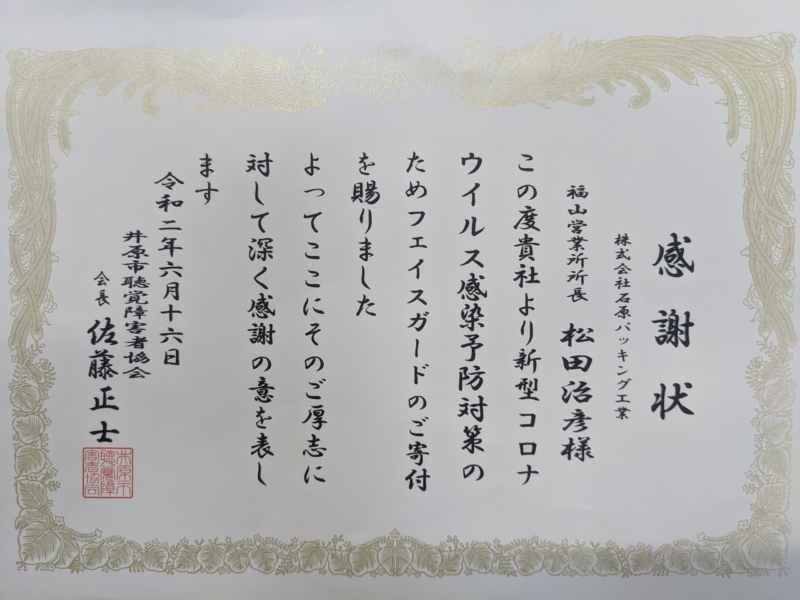 感謝状
株式会社石原パッキング工業
福山営業所所長　松田治彦様
この度貴社より新型コロナ
ウイルス感染予防対策の
ためフェイスガードのご寄付
を賜りました
よってここにそのご厚志に
対して深く感謝の意を表し
ます
令和二年六月十六日
井原市聴覚障害者協会
会長　佐藤正士
井原市
聴覚障
害者協会